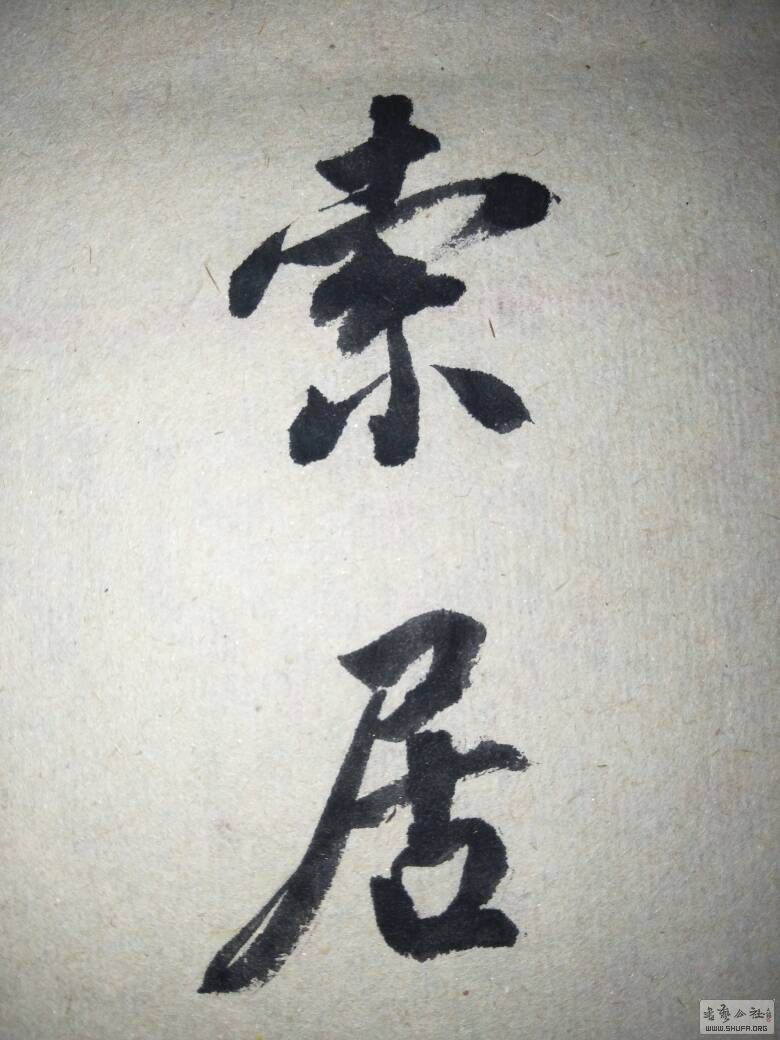 索居
书艺公社
WWW.SHUFA.ORG